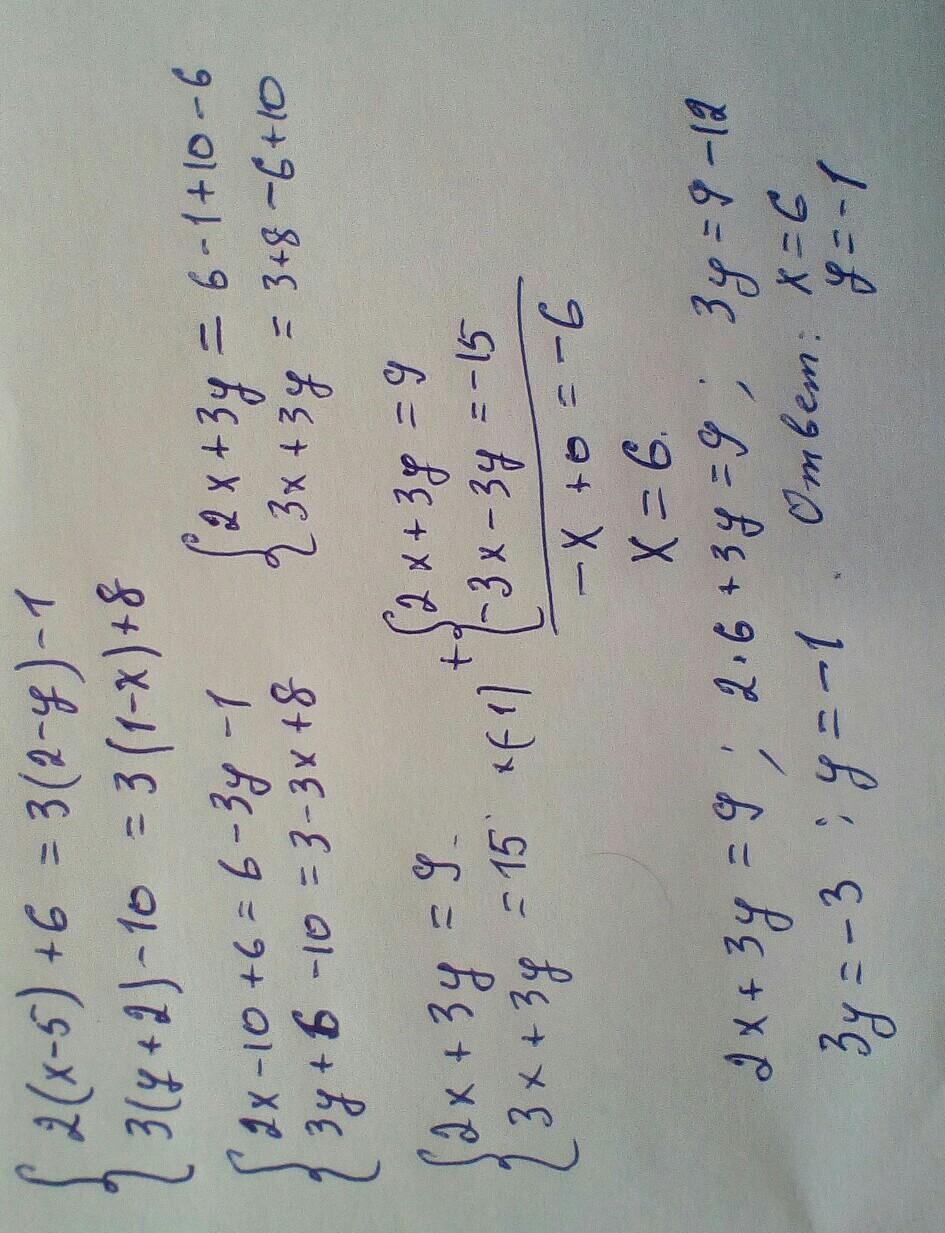 { 2(x-5)+6 = 3(2-y)-1
3(y+2)-10 = 3(1-x)+8
{ 2x-10+6=6-3y-1
3y+6-10=3-3x+8
{ 2x+3y = 6-1+10-6
3x+3y = 3+8-6+10
{ 2x+3y = 9
3x+3y = 15 ×(-1)
+ { 2x+3y = 9
-3x-3y = -15
-x+0=-6
x=6.
2x+3y=9; 2·6+3y=9; 3y=9-12
3y=-3; y=-1. Ответ: x=6
y=-1